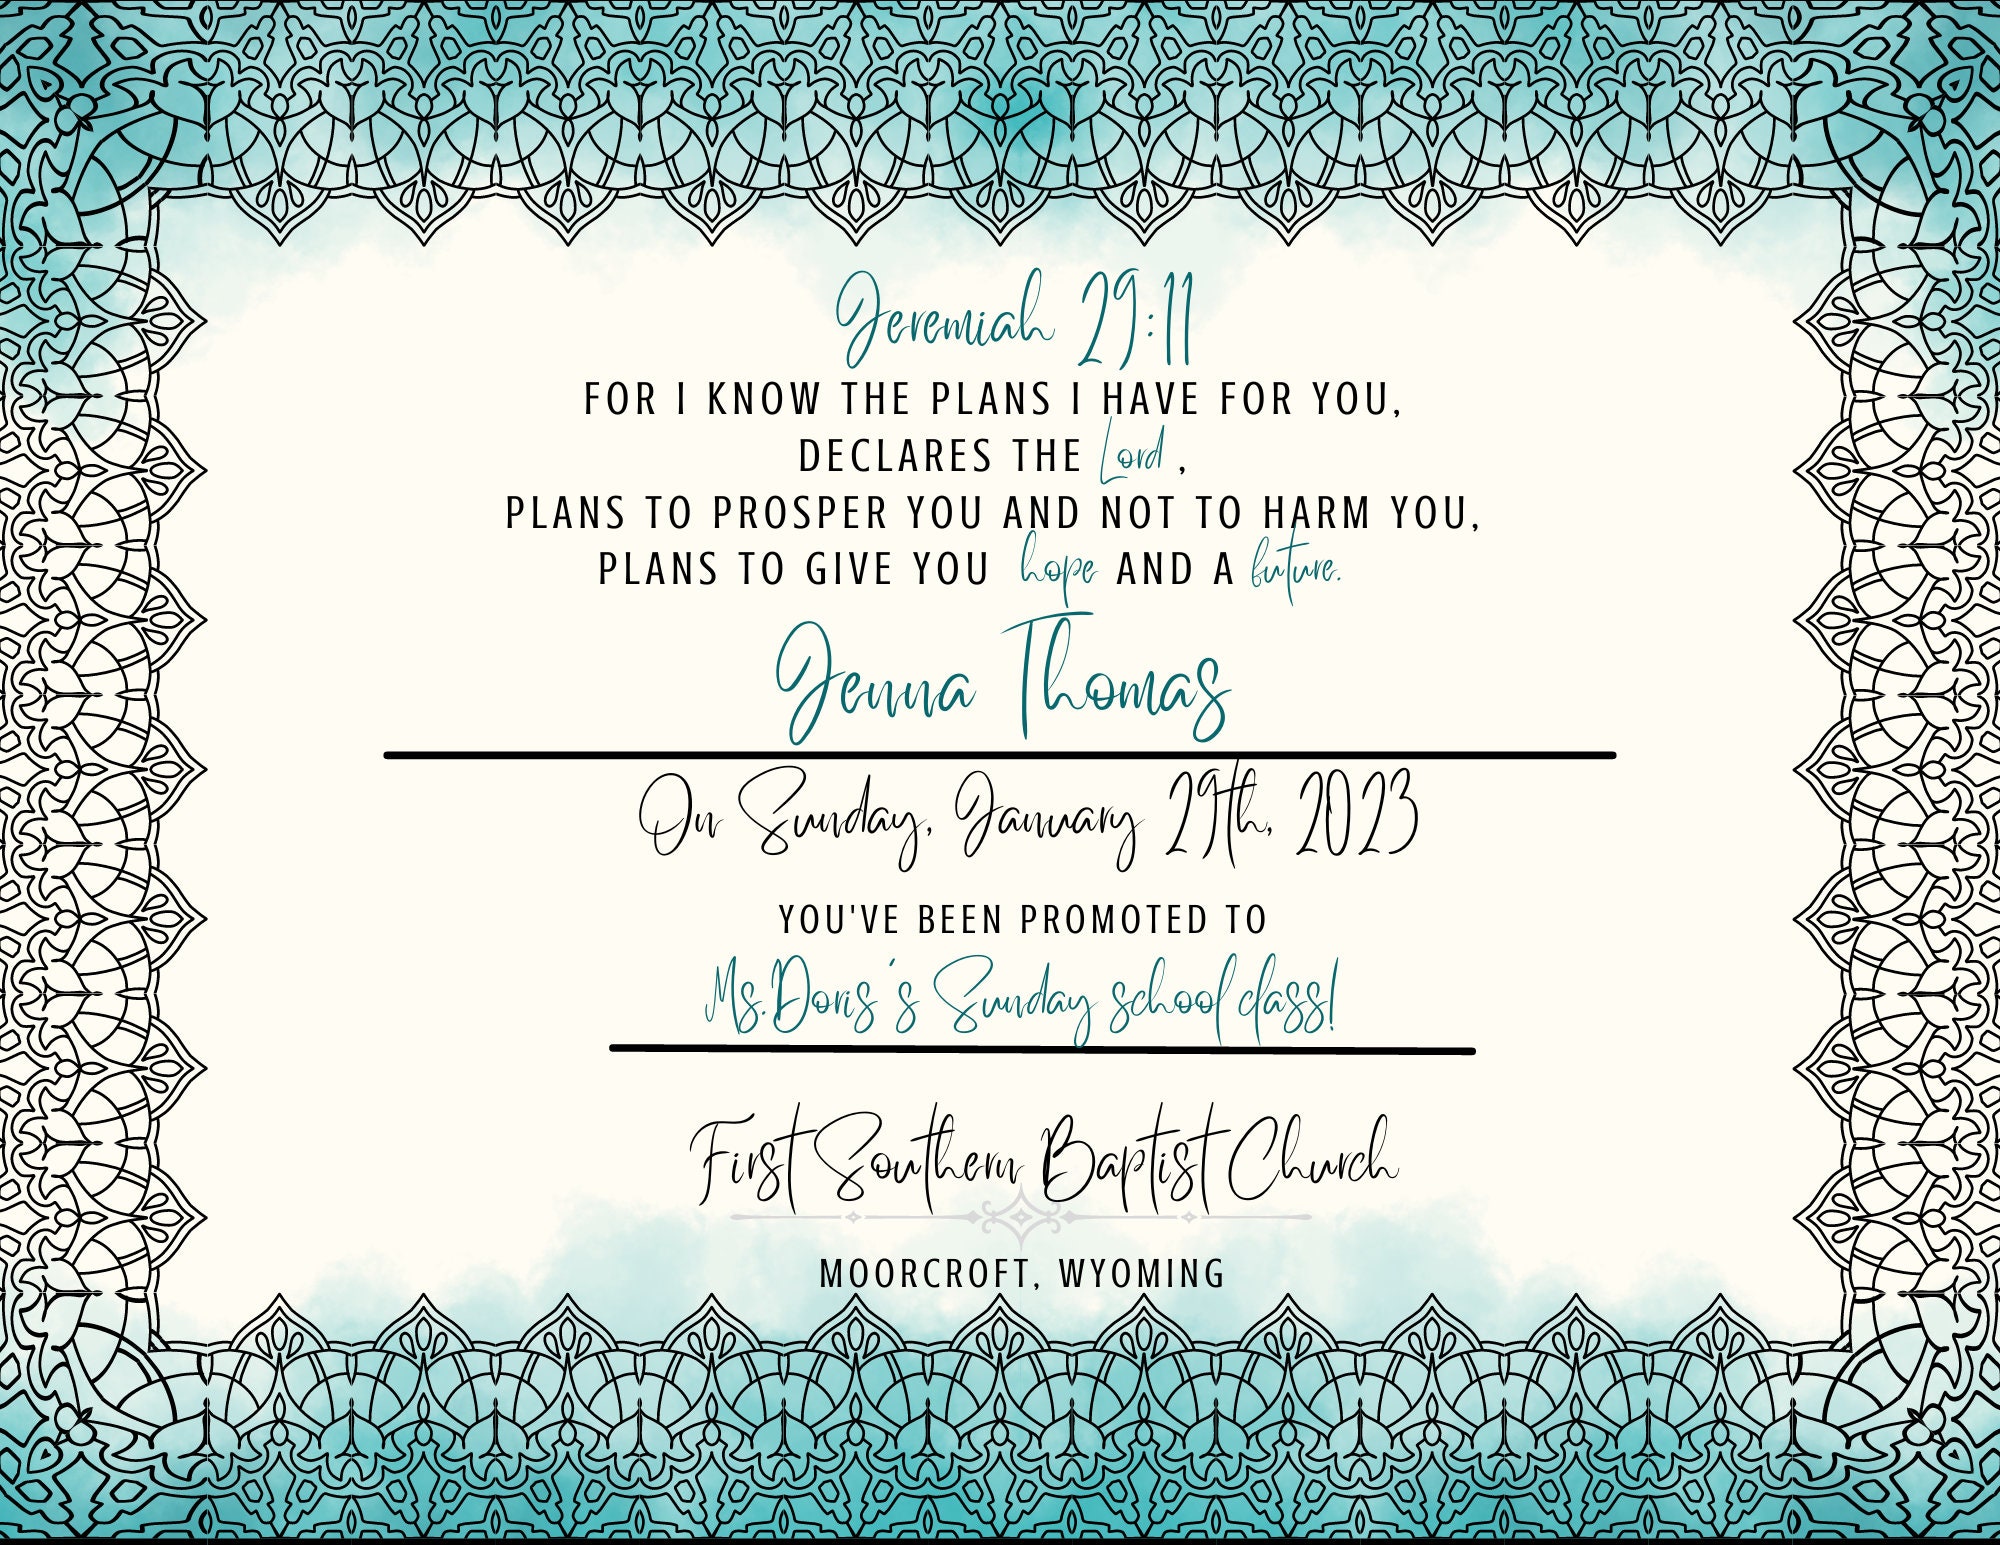 Jeremiah 29:11
FOR I KNOW THE PLANS I HAVE FOR YOU,
DECLARES THE Lord ,
PLANS TO PROSPER YOU AND NOT TO HARM YOU,
PLANS TO GIVE YOU hope AND A future.
Jenna Thomas
On Sunday, January 29th, 2023
YOU'VE BEEN PROMOTED TO
Ms.Doris's Sunday school class!
First Southern Baptist Church
MOORCROFT, WYOMING